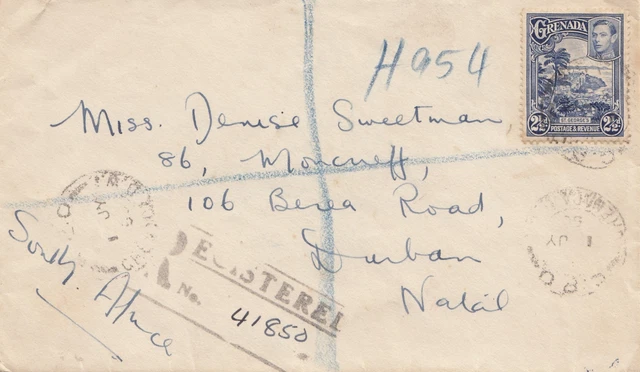 H954
GRENADA
ST. GEORGE'S
2½d 2½d
POSTAGE & REVENUE
Miss. Denise Sweetman,
86, Moncrieff,
106 Berea Road,
Durban
Natal
South Africa
REGISTERED
No. 41850